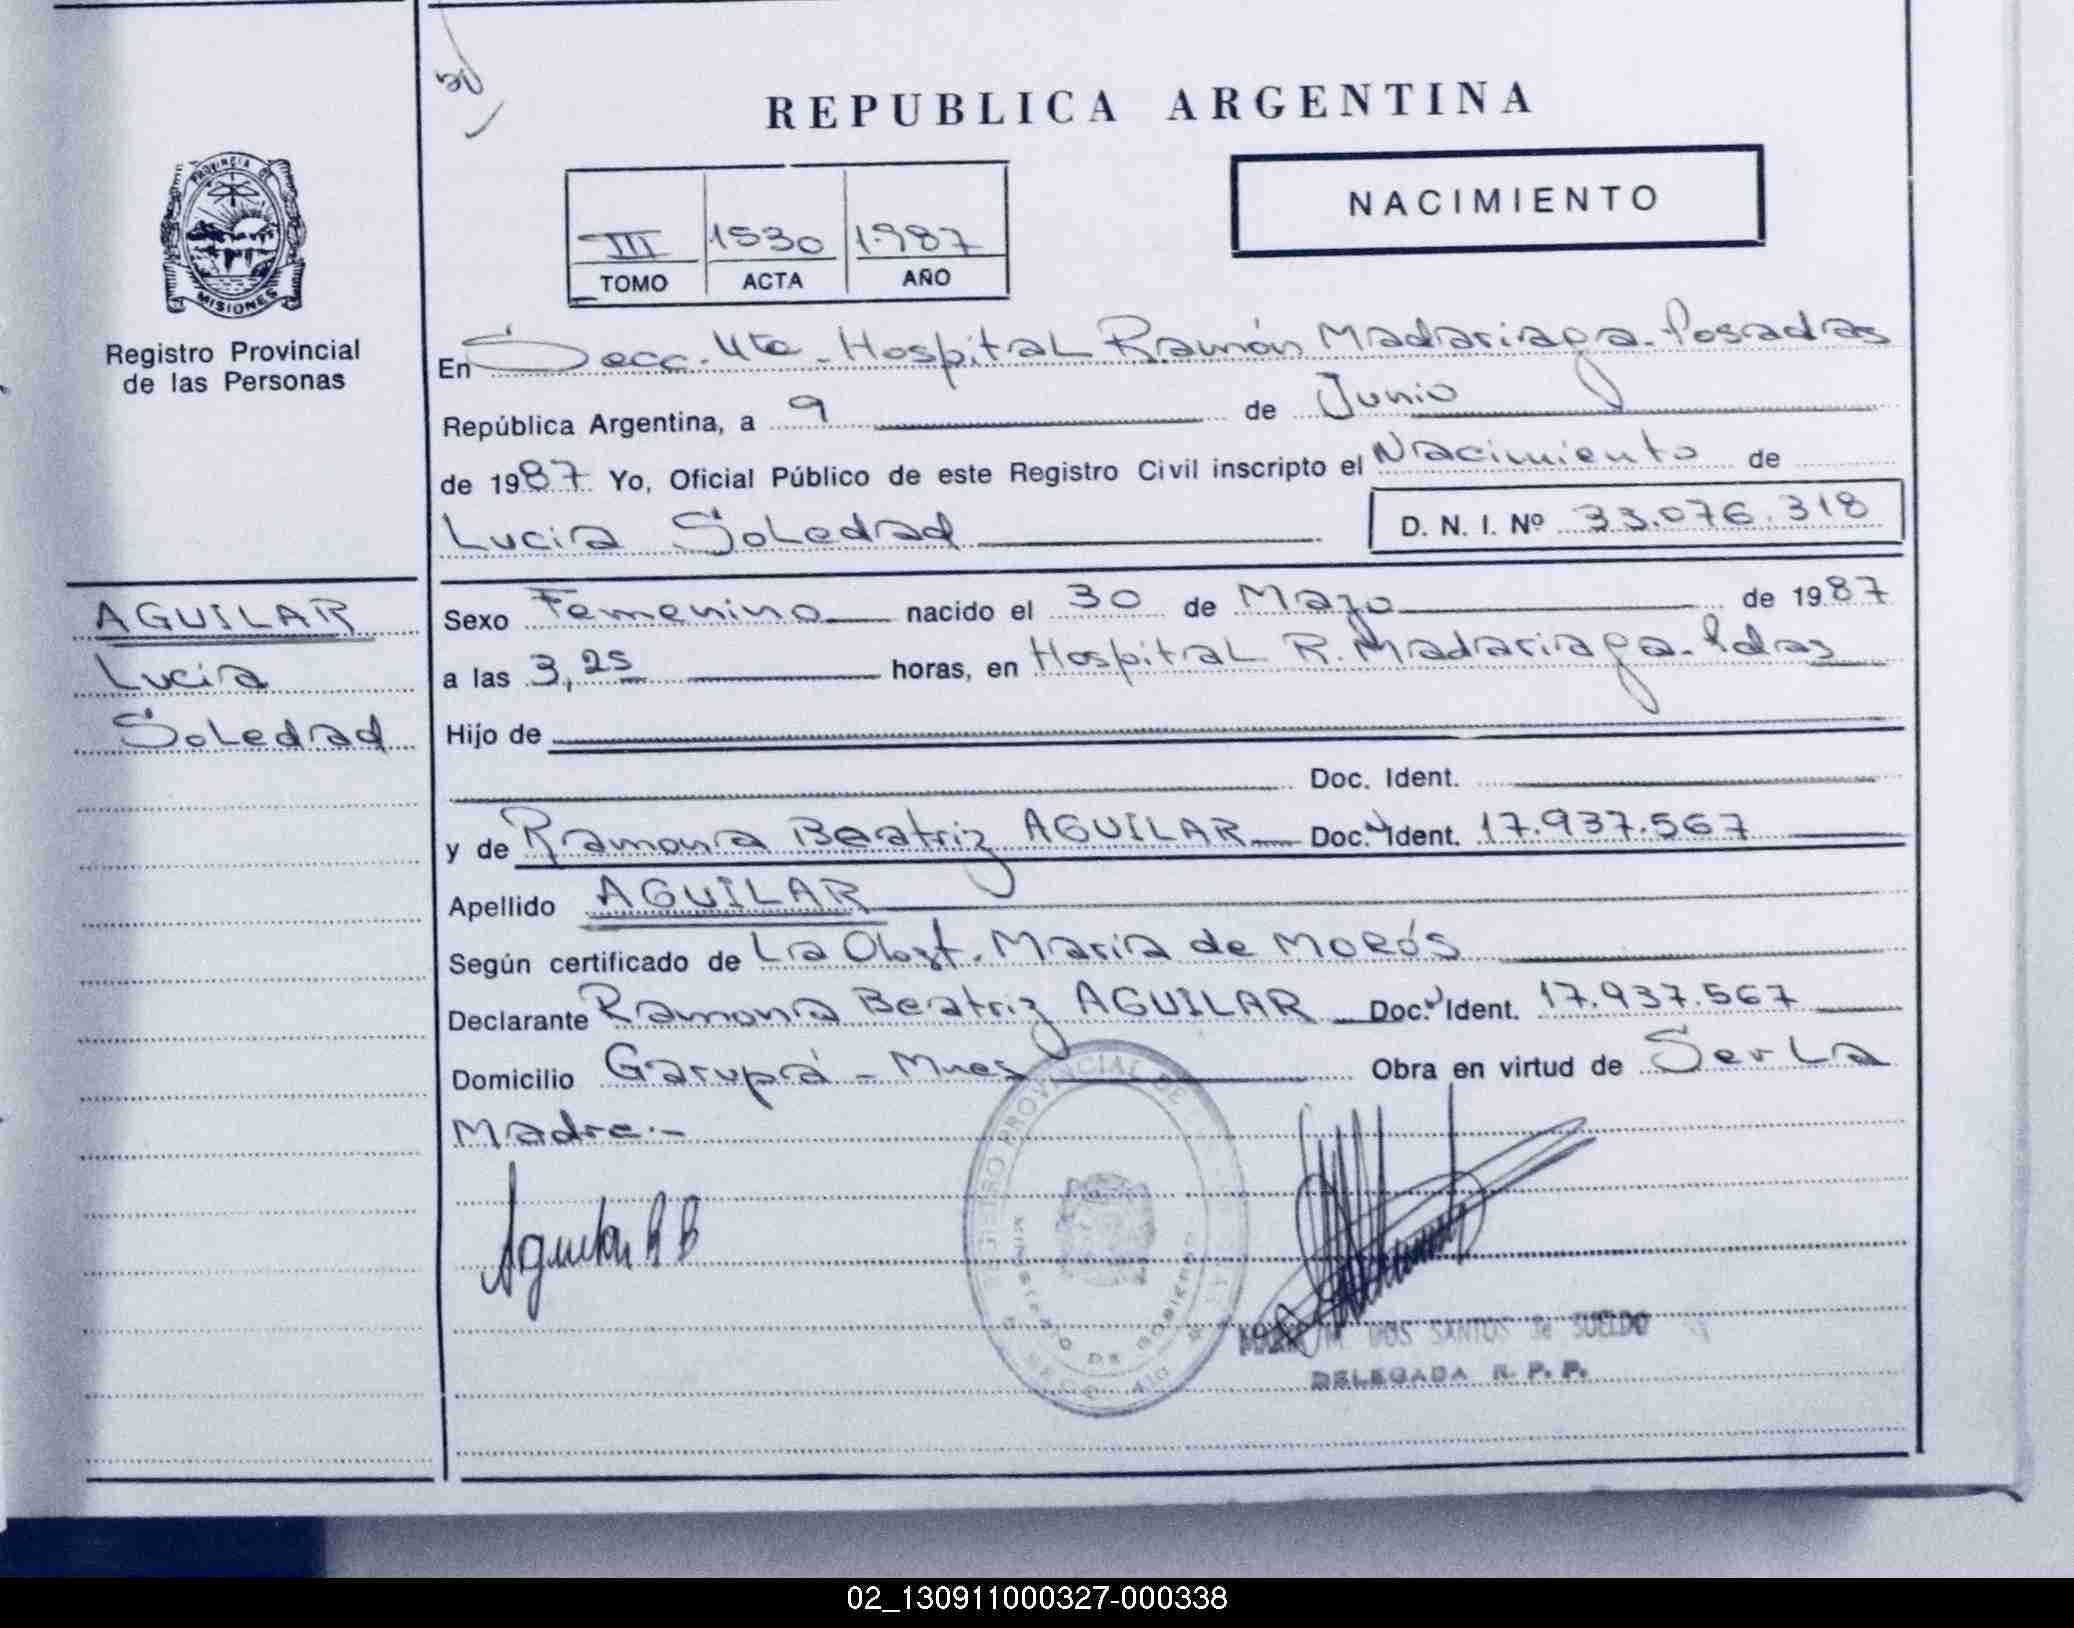 REPUBLICA ARGENTINA
PROVINCIA DE
MISIONES
Registro Provincial
de las Personas
NACIMIENTO
III 1530 1987
TOMO ACTA AÑO
En Secc. 4ta - Hospital Ramón Madariaga - Posadas
República Argentina, a 9 de Junio
de 1987 Yo, Oficial Público de este Registro Civil inscripto el Nacimiento de
Lucia Soledad D. N. I. Nº 33.076.318
AGUILAR
Lucia
Soledad
Sexo Femenino nacido el 30 de Mayo de 1987
a las 3,25 horas, en Hospital R. Madariaga - Pdas
Hijo de
Doc. Ident.
y de Ramona Beatriz AGUILAR Doc. Ident. 17.937.567
Apellido AGUILAR
Según certificado de La Obst. Maria de MORÓS
Declarante Ramona Beatriz AGUILAR Doc. Ident. 17.937.567
Domicilio Garupá - Mnes Obra en virtud de Ser La
Madre.-
Aguilar R B
REGISTRO PROVINCIAL DE
MINISTERIO DE GOBIERNO
M. DOS SANTOS de SUELDO
DELEGADA R. P. P.
02_130911000327-000338